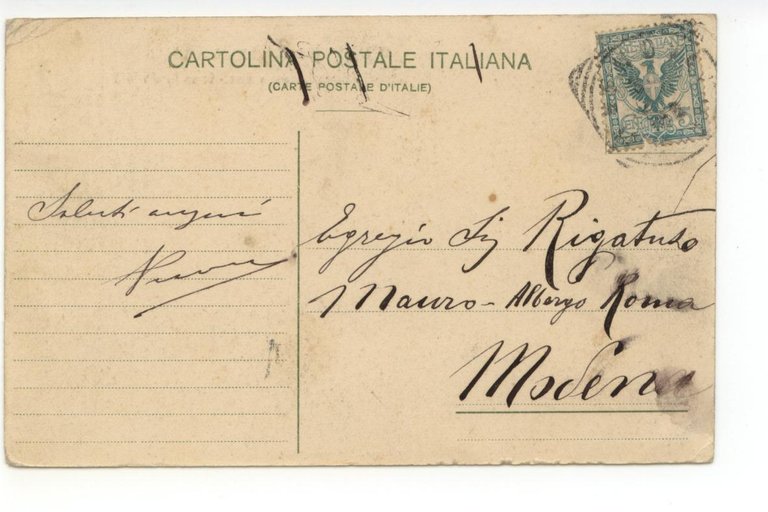 CARTOLINA POSTALE ITALIANA
(CARTE POSTALE D'ITALIE)
Saluti auguri
Egregio Sig Rigatuso
Mauro - Albergo Roma
Modena